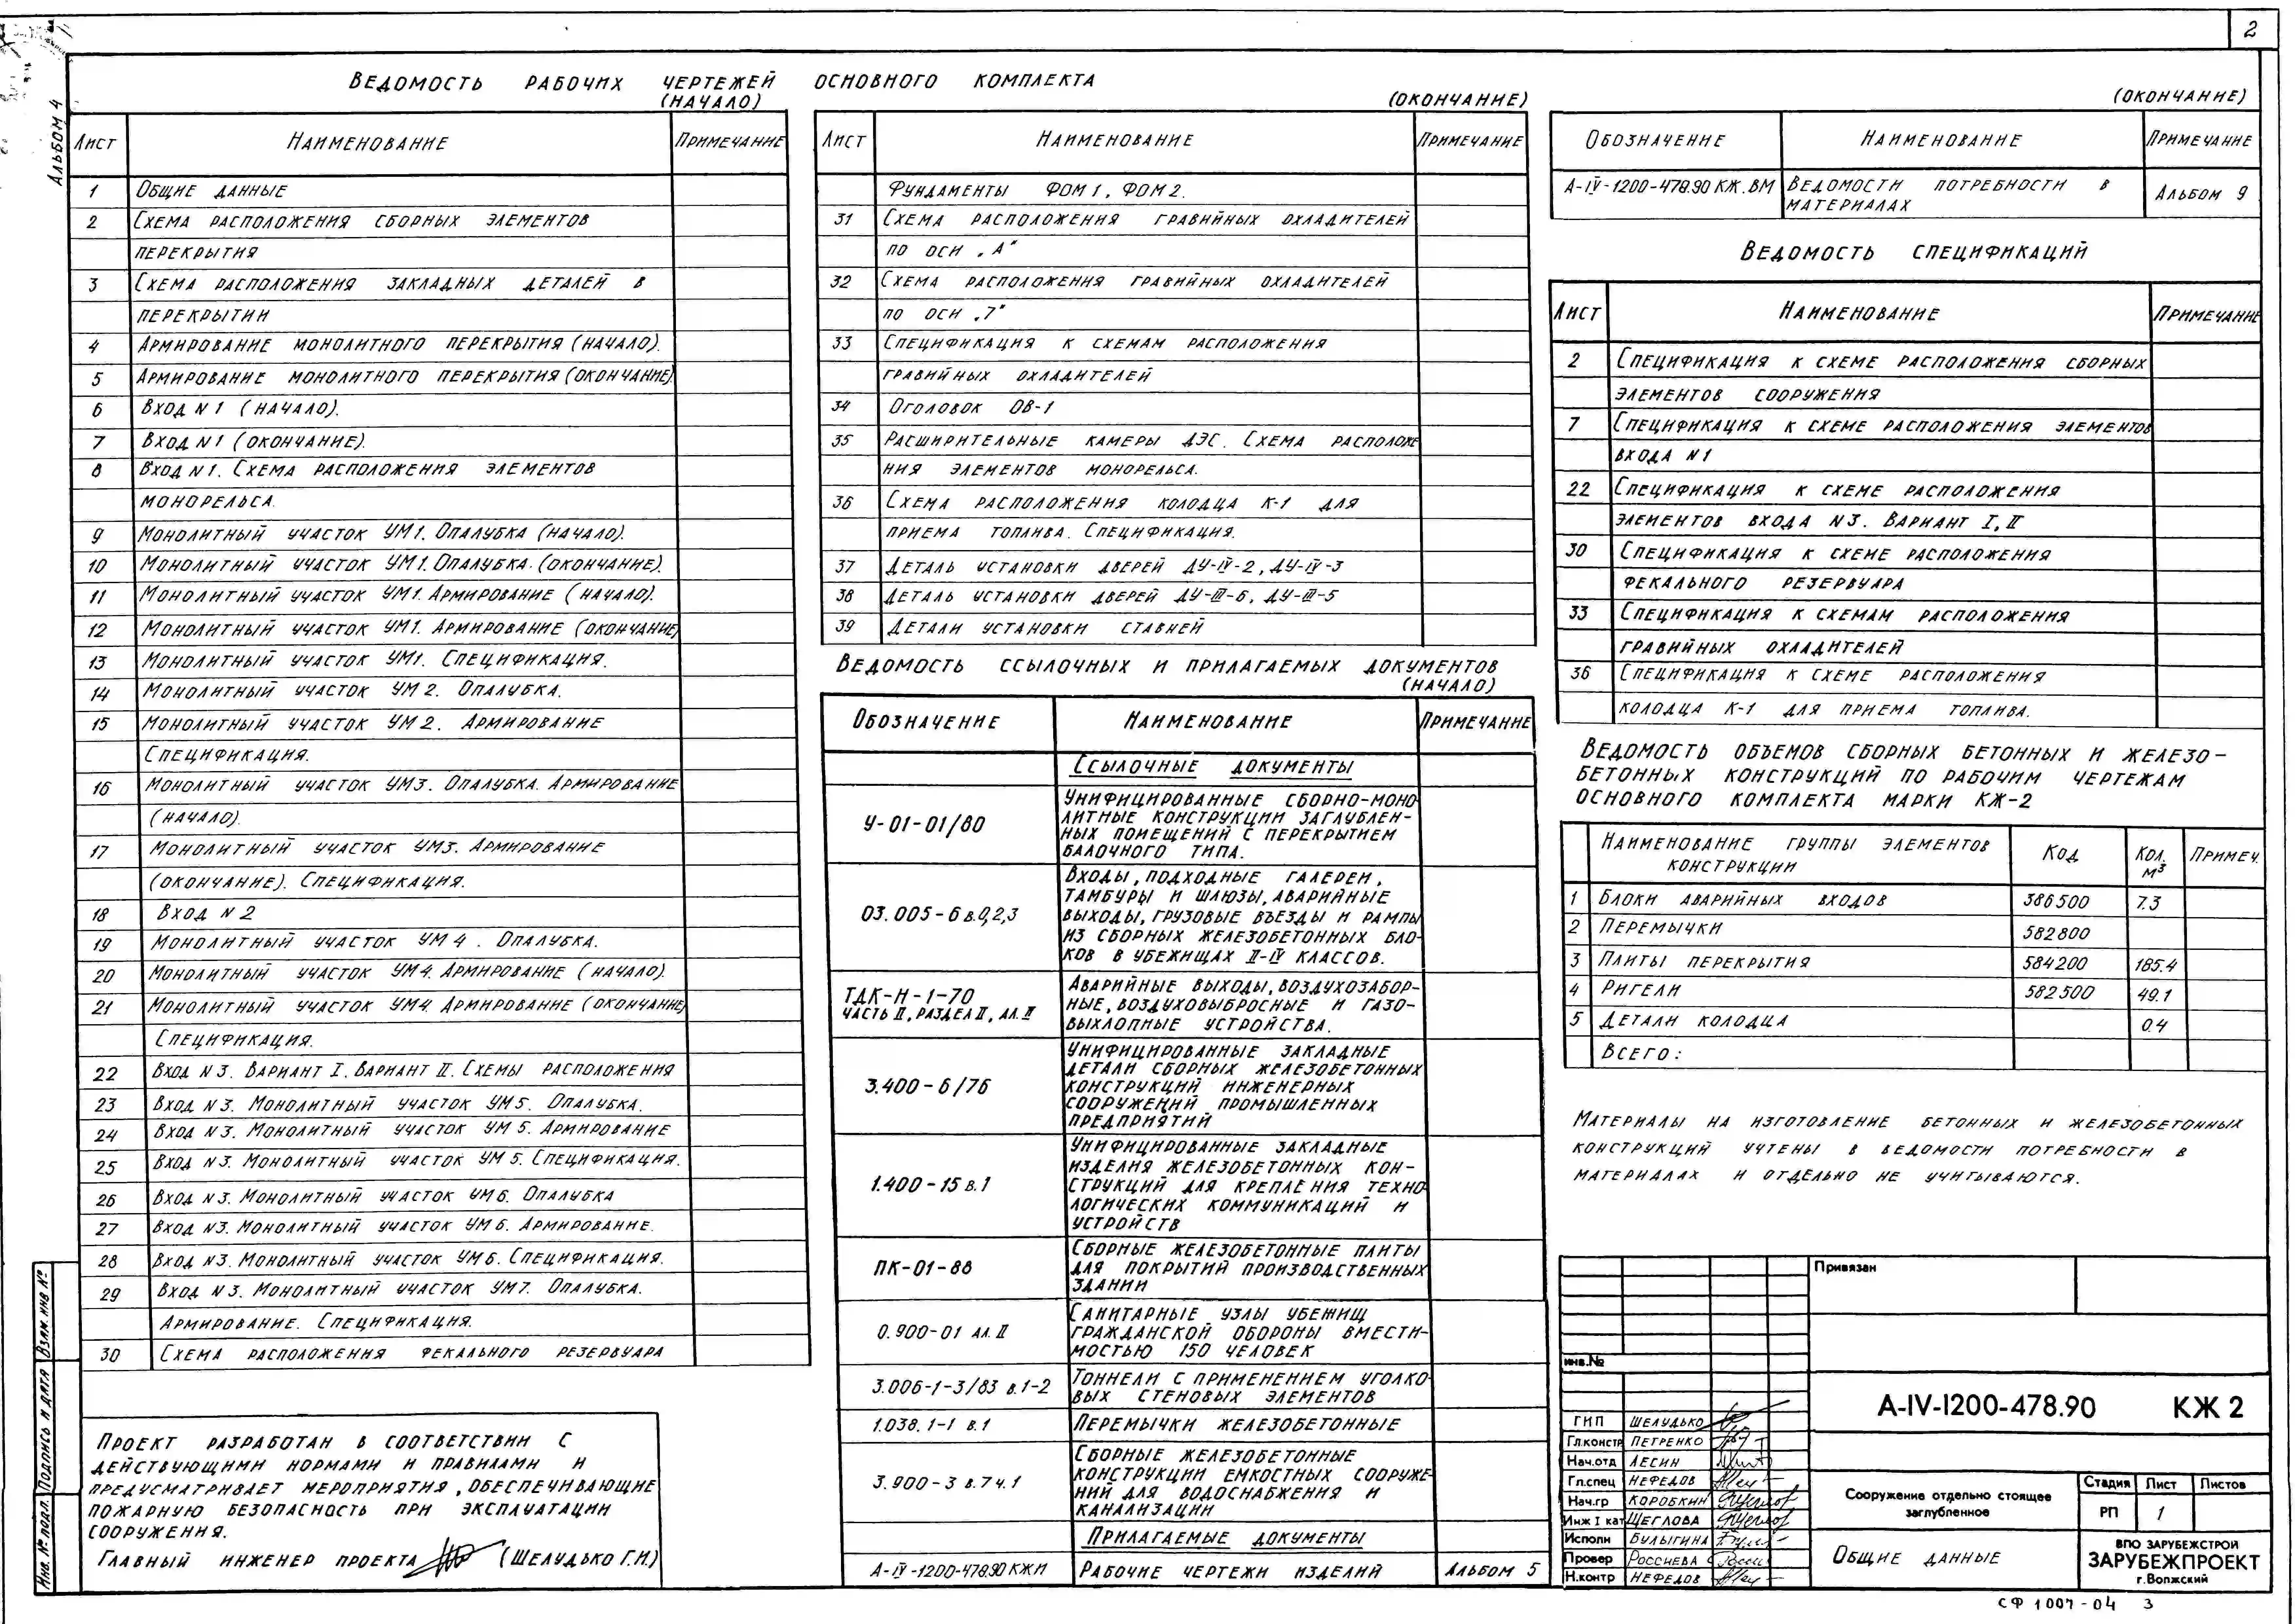 2
Альбом 4
Ведомость рабочих чертежей основного комплекта
(начало)
Лист Наименование Примечание
1 Общие данные
2 Схема расположения сборных элементов
перекрытия
3 Схема расположения закладных деталей в
перекрытии
4 Армирование монолитного перекрытия (начало).
5 Армирование монолитного перекрытия (окончание).
6 Вход N1 (начало).
7 Вход N1 (окончание).
8 Вход N1. Схема расположения элементов
монорельса.
9 Монолитный участок УМ1. Опалубка (начало).
10 Монолитный участок УМ1. Опалубка. (окончание).
11 Монолитный участок УМ1. Армирование (начало).
12 Монолитный участок УМ1. Армирование (окончание)
13 Монолитный участок УМ1. Спецификация.
14 Монолитный участок УМ2. Опалубка.
15 Монолитный участок УМ2. Армирование
Спецификация.
16 Монолитный участок УМ3. Опалубка. Армирование
(начало).
17 Монолитный участок УМ3. Армирование
(окончание). Спецификация.
18 Вход N2
19 Монолитный участок УМ4. Опалубка.
20 Монолитный участок УМ4. Армирование (начало).
21 Монолитный участок УМ4. Армирование (окончание)
Спецификация.
22 Вход N3. Вариант I. Вариант II. Схемы расположения
23 Вход N3. Монолитный участок УМ5. Опалубка.
24 Вход N3. Монолитный участок УМ5. Армирование
25 Вход N3. Монолитный участок УМ5. Спецификация.
26 Вход N3. Монолитный участок УМ6. Опалубка
27 Вход N3. Монолитный участок УМ6. Армирование.
28 Вход N3. Монолитный участок УМ6. Спецификация.
29 Вход N3. Монолитный участок УМ7. Опалубка.
Армирование. Спецификация.
30 Схема расположения фекального резервуара
Проект разработан в соответствии с
действующими нормами и правилами и
предусматривает мероприятия, обеспечивающие
пожарную безопасность при эксплуатации
сооружения.
Главный инженер проекта (Шелудько Г.И.)
Инв. № подл. Подпись и дата Взам. инв №
(окончание)
Лист Наименование Примечание
Фундаменты ФОМ1, ФОМ2.
31 Схема расположения гравийных охладителей
по оси „А"
32 Схема расположения гравийных охладителей
по оси „7"
33 Спецификация к схемам расположения
гравийных охладителей
34 Оголовок ОВ-1
35 Расширительные камеры ДЭС. Схема располоще
ния элементов монорельса.
36 Схема расположения колодца К-1 для
приема топлива. Спецификация.
37 Деталь установки дверей ДУ-IV-2, ДУ-IV-3
38 Деталь установки дверей ДУ-III-6, ДУ-III-5
39 Детали установки ставней
Ведомость ссылочных и прилагаемых документов
(начало)
Обозначение Наименование Примечание
Ссылочные документы
У-01-01/80 Унифицированные сборно-моно
литные конструкции заглублен-
ных помещений с перекрытием
балочного типа.
03.005-6 в.0,2,3 Входы, подходные галереи,
тамбуры и шлюзы, аварийные
выходы, грузовые въезды и рампы
из сборных железобетонных бло-
ков в убежищах II-IV классов.
ТДК-Н-1-70 Аварийные выходы, воздухозабор-
часть II, раздел II, ал. II ные, воздуховыбросные и газо-
выхлопные устройства.
3.400-6/76 Унифицированные закладные
детали сборных железобетонных
конструкций инженерных
сооружений промышленных
предприятий
1.400-15 в.1 Унифицированные закладные
изделия железобетонных кон-
струкций для крепления техно
логических коммуникаций и
устройств
ПК-01-88 Сборные железобетонные плиты
для покрытий производственных
зданий
0.900-01 ал. II Санитарные узлы убежищ
гражданской обороны вмести-
мостью 150 человек
3.006-1-3/83 в.1-2 Тоннели с применением уголко
вых стеновых элементов
1.038.1-1 в.1 Перемычки железобетонные
3.900-3 в.7 ч.1 Сборные железобетонные
конструкции емкостных сооруже
ний для водоснабжения и
канализации
Прилагаемые документы
А-IV-1200-478.90 КЖИ Рабочие чертежи изделий Альбом 5
(окончание)
Обозначение Наименование Примечание
А-IV-1200-478.90 КЖ.ВМ Ведомости потребности в
материалах Альбом 9
Ведомость спецификаций
Лист Наименование Примечание
2 Спецификация к схеме расположения сборных
элементов сооружения
7 Спецификация к схеме расположения элементов
входа N1
22 Спецификация к схеме расположения
элементов входа N3. Вариант I, II
30 Спецификация к схеме расположения
фекального резервуара
33 Спецификация к схемам расположения
гравийных охладителей
36 Спецификация к схеме расположения
колодца К-1 для приема топлива.
Ведомость объемов сборных бетонных и железо-
бетонных конструкций по рабочим чертежам
основного комплекта марки КЖ-2
Наименование группы элементов
конструкции Код Кол. м³ Примеч.
1 Блоки аварийных входов 386500 7.3
2 Перемычки 582800
3 Плиты перекрытия 584200 185.4
4 Ригели 582500 49.1
5 Детали колодца 0.4
Всего:
Материалы на изготовление бетонных и железобетонных
конструкций учтены в ведомости потребности в
материалах и отдельно не учитываются.
Привязан
инв.№
ГИП Шелудько
Гл.констр Петренко
Нач.отд Лесин
Гл.спец Нефедов
Нач.гр Коробкин
Инж I кат Щеглова
Исполн Булыгина
Провер Россиева
Н.контр Нефедов
А-IV-1200-478.90 КЖ 2
Сооружение отдельно стоящее
заглубленное
Стадия Лист Листов
РП 1
Общие данные
ВПО ЗАРУБЕЖСТРОЙ
ЗАРУБЕЖПРОЕКТ
г.Волжский
СФ 1007-04 3